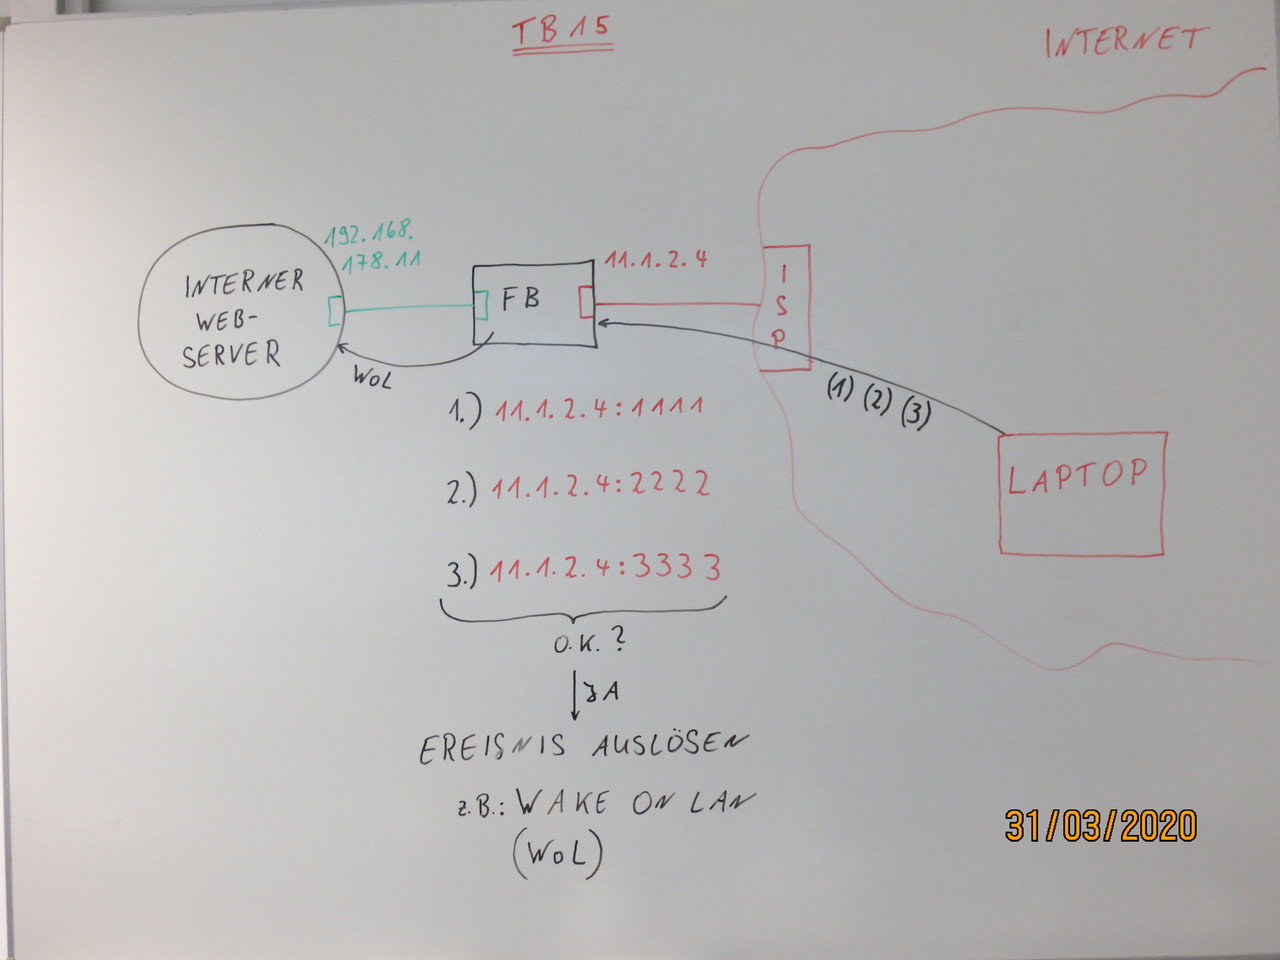 TB15
INTERNET
192.168.
178.11
INTERNER
WEB-
SERVER
FB
11.1.2.4
I
S
P
WOL
(1) (2) (3)
LAPTOP
1.) 11.1.2.4:1111
2.) 11.1.2.4:2222
3.) 11.1.2.4:3333
O.K.?
JA
EREIGNIS AUSLÖSEN
z.B.: WAKE ON LAN
(WOL)
31/03/2020